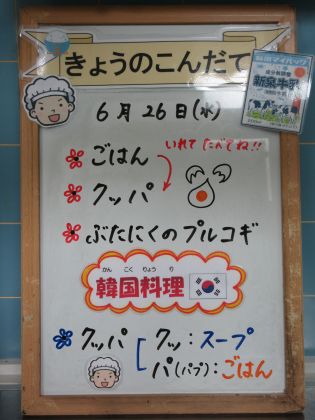 きょうのこんだて
6月26日(水)
ごはん
いれて たべてね!!
クッパ
ぶたにくのプルコギ
かん こく りょう り
韓国料理
クッパ
クッ:スープ
パ(パプ):ごはん